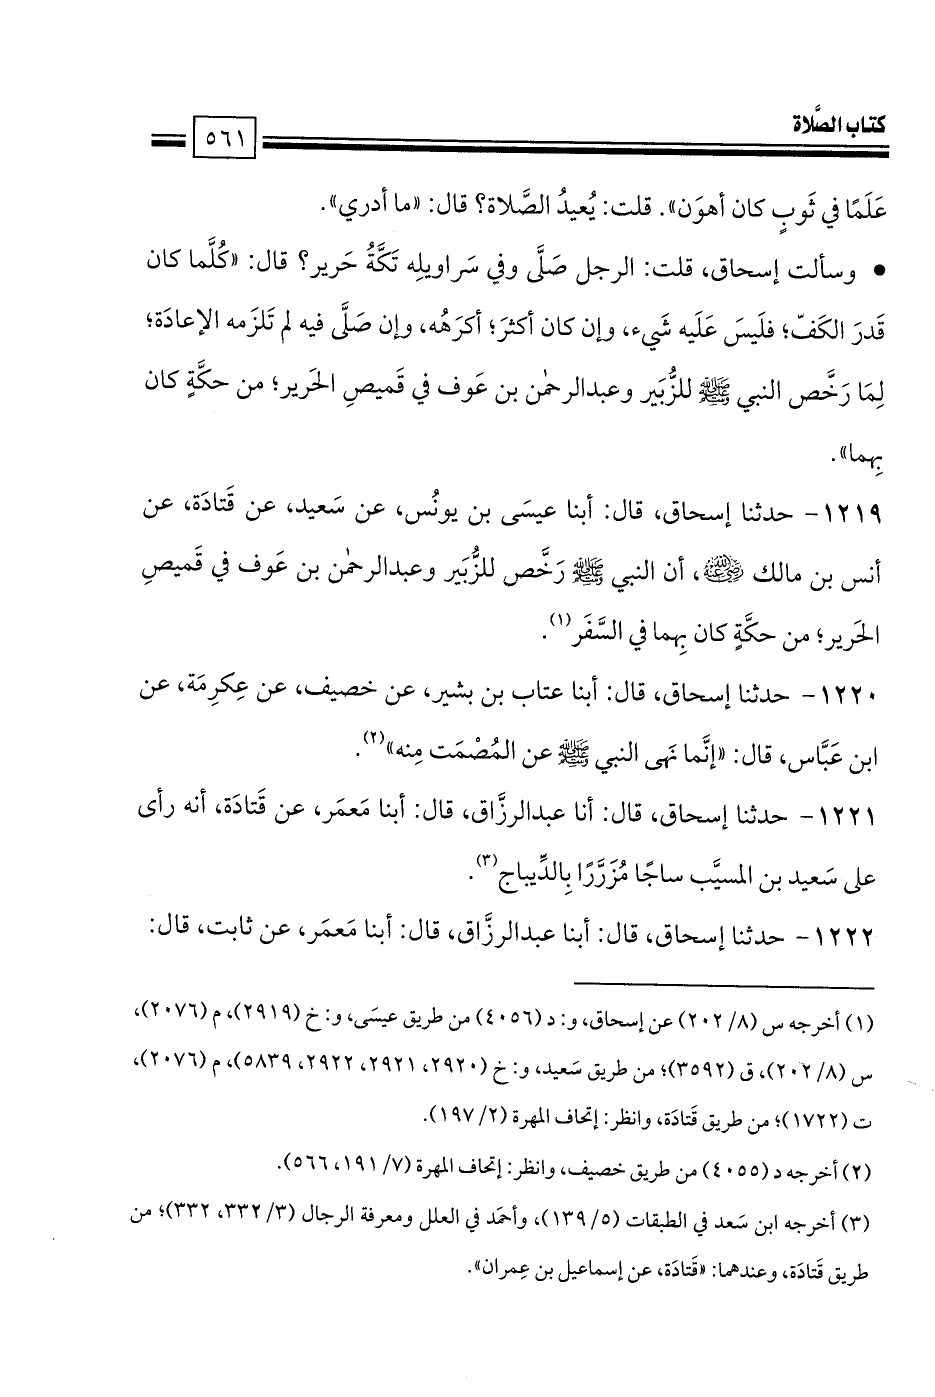 كتاب الصَّلاة
٥٦١
عَلَمًا في ثَوبٍ كان أهوَن». قلت: يُعيدُ الصَّلاة؟ قال: «ما أدري».
• وسألت إسحاق، قلت: الرجل صَلَّى وفي سَراويلِه تَكَّةُ حَرير؟ قال: «كُلَّما كان
قَدرَ الكَفّ؛ فلَيسَ عَلَيه شَيء، وإن كان أكثرَ؛ أكرَهُه، وإن صَلَّى فيه لم تَلزَمه الإعادَة؛
لِمَا رَخَّص النبي ﷺ للزُّبَير وعبدالرحمٰن بن عَوف في قَميصِ الحَرير؛ من حكَّةٍ كان
بِهما».
١٢١٩- حدثنا إسحاق، قال: أبنا عيسَى بن يونُس، عن سَعيد، عن قَتادَة، عن
أنس بن مالك رضي الله عنه، أن النبي ﷺ رَخَّص للزُّبَير وعبدالرحمٰن بن عَوف في قَميصِ
الحَرير؛ من حكَّةٍ كان بِهما في السَّفَر(١).
١٢٢٠- حدثنا إسحاق، قال: أبنا عتاب بن بشير، عن خصيف، عن عِكرِمَة، عن
ابن عَبَّاس، قال: «إنَّما نَهى النبي ﷺ عن المُصْمَت مِنه»(٢).
١٢٢١- حدثنا إسحاق، قال: أنا عبدالرزَّاق، قال: أبنا مَعمَر، عن قَتادَة، أنه رأى
على سَعيد بن المسيَّب ساجًا مُزَرَّرًا بِالدِّيباج(٣).
١٢٢٢- حدثنا إسحاق، قال: أبنا عبدالرزَّاق، قال: أبنا مَعمَر، عن ثابت، قال:
(١) أخرجه س (٨/ ٢٠٢) عن إسحاق، و: د (٤٠٥٦) من طريق عيسَى، و: خ (٢٩١٩)، م (٢٠٧٦)،
س (٨/ ٢٠٢)، ق (٣٥٩٢)؛ من طريق سَعيد، و: خ (٢٩٢٠، ٢٩٢١، ٢٩٢٢، ٥٨٣٩)، م (٢٠٧٦)،
ت (١٧٢٢)؛ من طريق قَتادَة، وانظر: إتحاف المهرة (٢/ ١٩٧).
(٢) أخرجه د (٤٠٥٥) من طريق خصيف، وانظر: إتحاف المهرة (٧/ ١٩١، ٥٦٦).
(٣) أخرجه ابن سَعد في الطبقات (٥/ ١٣٩)، وأحمَد في العلل ومعرفة الرجال (٣/ ٣٣٢، ٣٣٢)؛ من
طريق قَتادَة، وعندهما: «قَتادَة، عن إسماعيل بن عِمران».